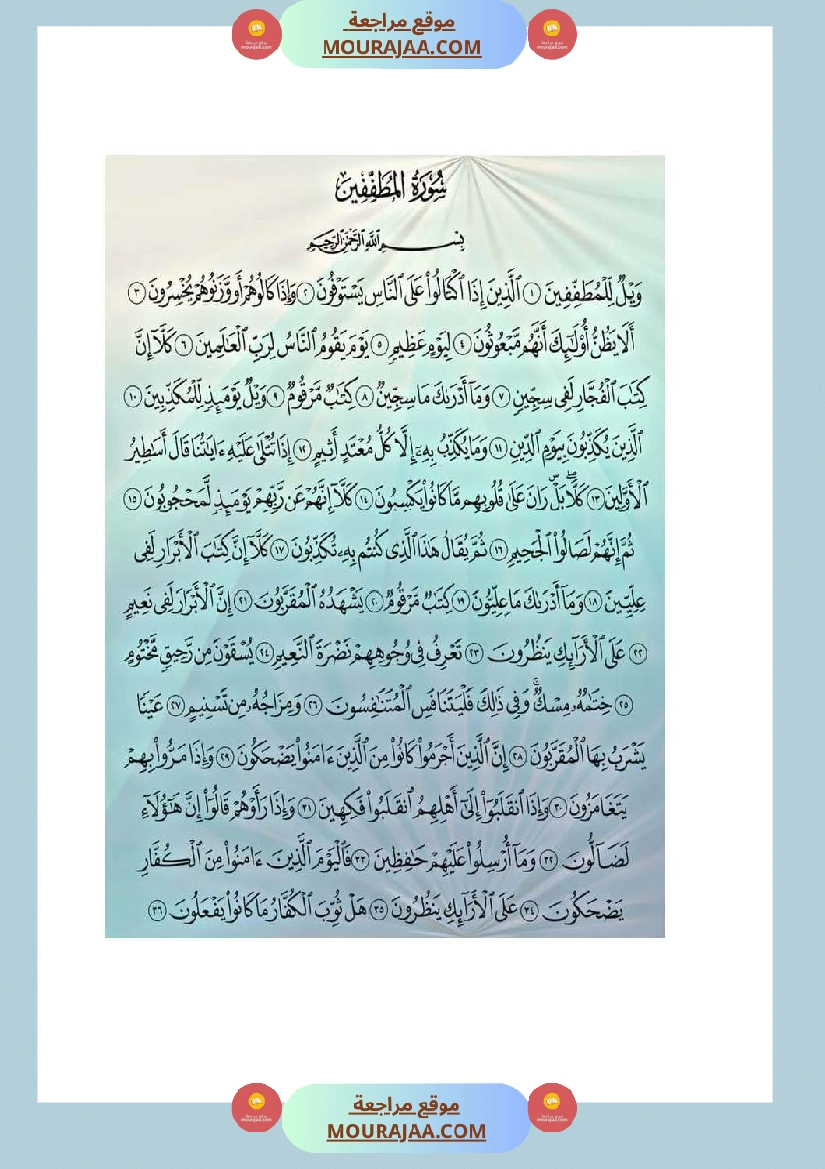 موقع مراجعة
MOURAJAA.COM
سُورَةُ المُطَفِّفِينَ
بِسْمِ اللَّهِ الرَّحْمَٰنِ الرَّحِيمِ
وَيْلٌ لِّلْمُطَفِّفِينَ ١ ٱلَّذِينَ إِذَا ٱكْتَالُوا۟ عَلَى ٱلنَّاسِ يَسْتَوْفُونَ ٢ وَإِذَا كَالُوهُمْ أَو وَّزَنُوهُمْ يُخْسِرُونَ ٣
أَلَا يَظُنُّ أُو۟لَٰٓئِكَ أَنَّهُم مَّبْعُوثُونَ ٤ لِيَوْمٍ عَظِيمٍ ٥ يَوْمَ يَقُومُ ٱلنَّاسُ لِرَبِّ ٱلْعَٰلَمِينَ ٦ كَلَّآ إِنَّ
كِتَٰبَ ٱلْفُجَّارِ لَفِى سِجِّينٍ ٧ وَمَآ أَدْرَىٰكَ مَا سِجِّينٌ ٨ كِتَٰبٌ مَّرْقُومٌ ٩ وَيْلٌ يَوْمَئِذٍ لِّلْمُكَذِّبِينَ ١٠
ٱلَّذِينَ يُكَذِّبُونَ بِيَوْمِ ٱلدِّينِ ١١ وَمَا يُكَذِّبُ بِهِۦٓ إِلَّا كُلُّ مُعْتَدٍ أَثِيمٍ ١٢ إِذَا تُتْلَىٰ عَلَيْهِ ءَايَٰتُنَا قَالَ أَسَٰطِيرُ
ٱلْأَوَّلِينَ ١٣ كَلَّا ۖ بَلْ ۜ رَانَ عَلَىٰ قُلُوبِهِم مَّا كَانُوا۟ يَكْسِبُونَ ١٤ كَلَّآ إِنَّهُمْ عَن رَّبِّهِمْ يَوْمَئِذٍ لَّمَحْجُوبُونَ ١٥
ثُمَّ إِنَّهُمْ لَصَالُوا۟ ٱلْجَحِيمِ ١٦ ثُمَّ يُقَالُ هَٰذَا ٱلَّذِى كُنتُم بِهِۦ تُكَذِّبُونَ ١٧ كَلَّآ إِنَّ كِتَٰبَ ٱلْأَبْرَارِ لَفِى
عِلِّيِّينَ ١٨ وَمَآ أَدْرَىٰكَ مَا عِلِّيُّونَ ١٩ كِتَٰبٌ مَّرْقُومٌ ٢٠ يَشْهَدُهُ ٱلْمُقَرَّبُونَ ٢١ إِنَّ ٱلْأَبْرَارَ لَفِى نَعِيمٍ
٢٢ عَلَى ٱلْأَرَآئِكِ يَنظُرُونَ ٢٣ تَعْرِفُ فِى وُجُوهِهِمْ نَضْرَةَ ٱلنَّعِيمِ ٢٤ يُسْقَوْنَ مِن رَّحِيقٍ مَّخْتُومٍ
٢٥ خِتَٰمُهُۥ مِسْكٌ ۚ وَفِى ذَٰلِكَ فَلْيَتَنَافَسِ ٱلْمُتَنَٰفِسُونَ ٢٦ وَمِزَاجُهُۥ مِن تَسْنِيمٍ ٢٧ عَيْنًا
يَشْرَبُ بِهَا ٱلْمُقَرَّبُونَ ٢٨ إِنَّ ٱلَّذِينَ أَجْرَمُوا۟ كَانُوا۟ مِنَ ٱلَّذِينَ ءَامَنُوا۟ يَضْحَكُونَ ٢٩ وَإِذَا مَرُّوا۟ بِهِمْ
يَتَغَامَزُونَ ٣٠ وَإِذَا ٱنقَلَبُوٓا۟ إِلَىٰٓ أَهْلِهِمُ ٱنقَلَبُوا۟ فَكِهِينَ ٣١ وَإِذَا رَأَوْهُمْ قَالُوٓا۟ إِنَّ هَٰٓؤُلَآءِ
لَضَآلُّونَ ٣٢ وَمَآ أُرْسِلُوا۟ عَلَيْهِمْ حَٰفِظِينَ ٣٣ فَٱلْيَوْمَ ٱلَّذِينَ ءَامَنُوا۟ مِنَ ٱلْكُفَّارِ
يَضْحَكُونَ ٣٤ عَلَى ٱلْأَرَآئِكِ يَنظُرُونَ ٣٥ هَلْ ثُوِّبَ ٱلْكُفَّارُ مَا كَانُوا۟ يَفْعَلُونَ ٣٦
موقع مراجعة
MOURAJAA.COM